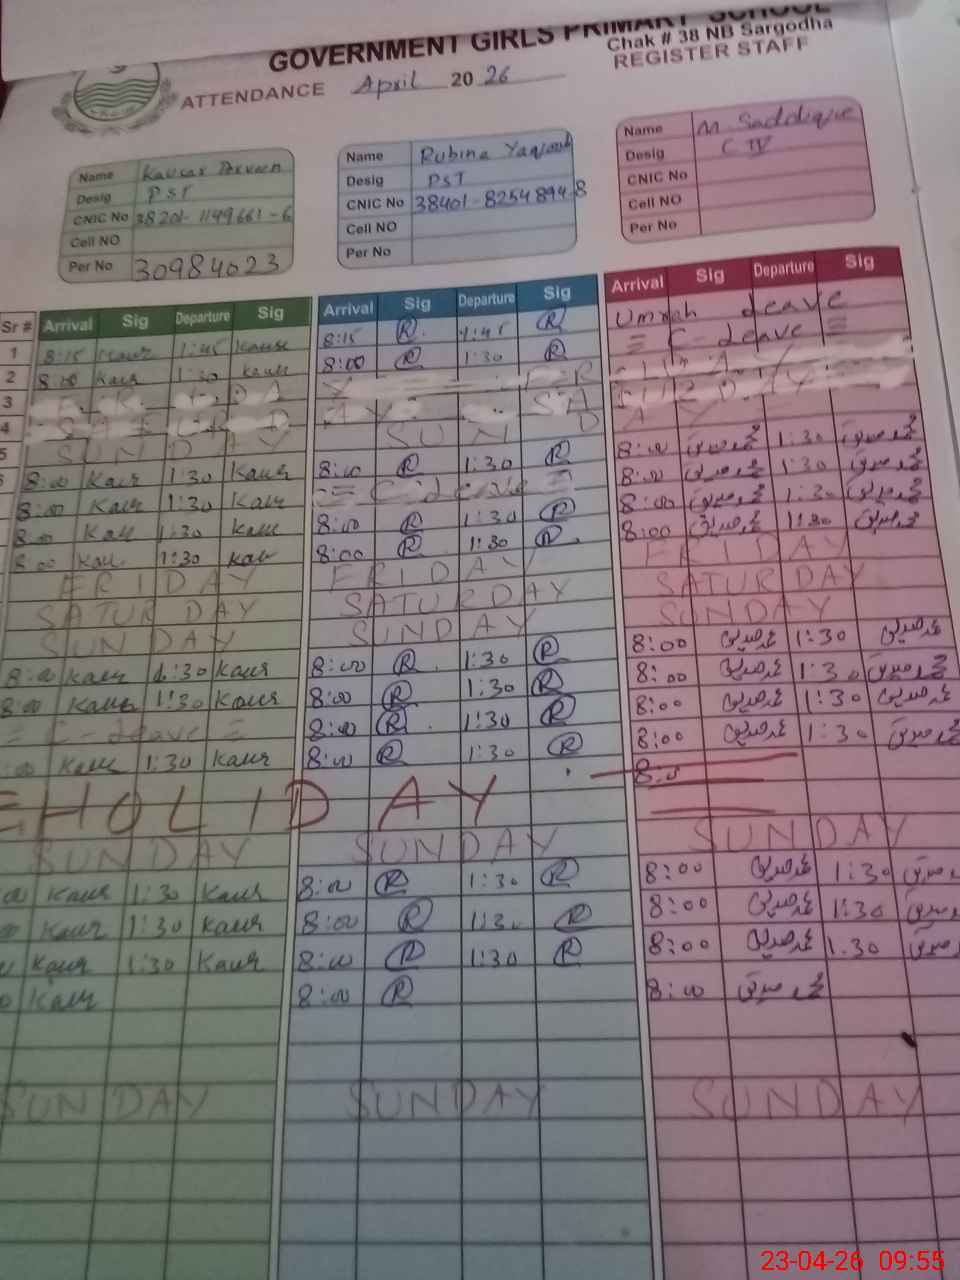 GOVERNMENT GIRLS PRIMARY SCHOOL
Chak # 38 NB Sargodha
ATTENDANCE April 2026 REGISTER STAFF
Name Kausar Parveen
Desig PST
CNIC No 38201-1149661-6
Cell NO
Per No 30984023
Name Rubina Yaqoob
Desig PST
CNIC No 38401-8254894-8
Cell NO
Per No
Name M Saddique
Desig C IV
CNIC No
Cell NO
Per No
Sr # Arrival Sig Departure Sig Arrival Sig Departure Sig Arrival Sig Departure Sig
1 8:15 Kausr 1:45 Kausr 8:15 R 1:45 R Umrah Leave
2 8:00 Kausr 1:30 Kausr 8:00 R 1:30 R = C-Leave =
3
4
5 SUNDAY SUND AY
8:00 Kausr 1:30 Kausr 8:00 R 1:30 R 8:00 محمد صدیق 1:30 محمد صدیق
8:00 Kausr 1:30 Kausr = C-Leave = 8:00 محمد صدیق 1:30 محمد صدیق
8:00 Kausr 1:30 Kausr 8:00 R 1:30 R 8:00 محمد صدیق 1:30 محمد صدیق
8:00 Kausr 1:30 Kausr 8:00 R 1:30 R 8:00 محمد صدیق 1:30 محمد صدیق
FRIDAY FRIDAY FRIDAY
SATURDAY SATURDAY SATURDAY
SUNDAY SUNDAY SUNDAY
8:00 Kausr 1:30 Kausr 8:00 R 1:30 R 8:00 محمد صدیق 1:30 محمد صدیق
8:00 Kausr 1:30 Kausr 8:00 R 1:30 R 8:00 محمد صدیق 1:30 محمد صدیق
= C-Leave = 8:00 R 1:30 R 8:00 محمد صدیق 1:30 محمد صدیق
:00 Kausr 1:30 Kausr 8:00 R 1:30 R 8:00 محمد صدیق 1:30 محمد صدیق
8:0
HOLIDAY
SUNDAY SUNDAY SUNDAY
Kausr 1:30 Kausr 8:00 R 1:30 R 8:00 محمد صدیق 1:30
Kausr 1:30 Kausr 8:00 R 1:30 R 8:00 محمد صدیق 1:30
Kausr 1:30 Kausr 8:00 R 1:30 R 8:00 محمد صدیق 1:30
Kausr 8:00 R 8:00 محمد صدیق
SUNDAY SUNDAY SUNDAY
23-04-26 09:55